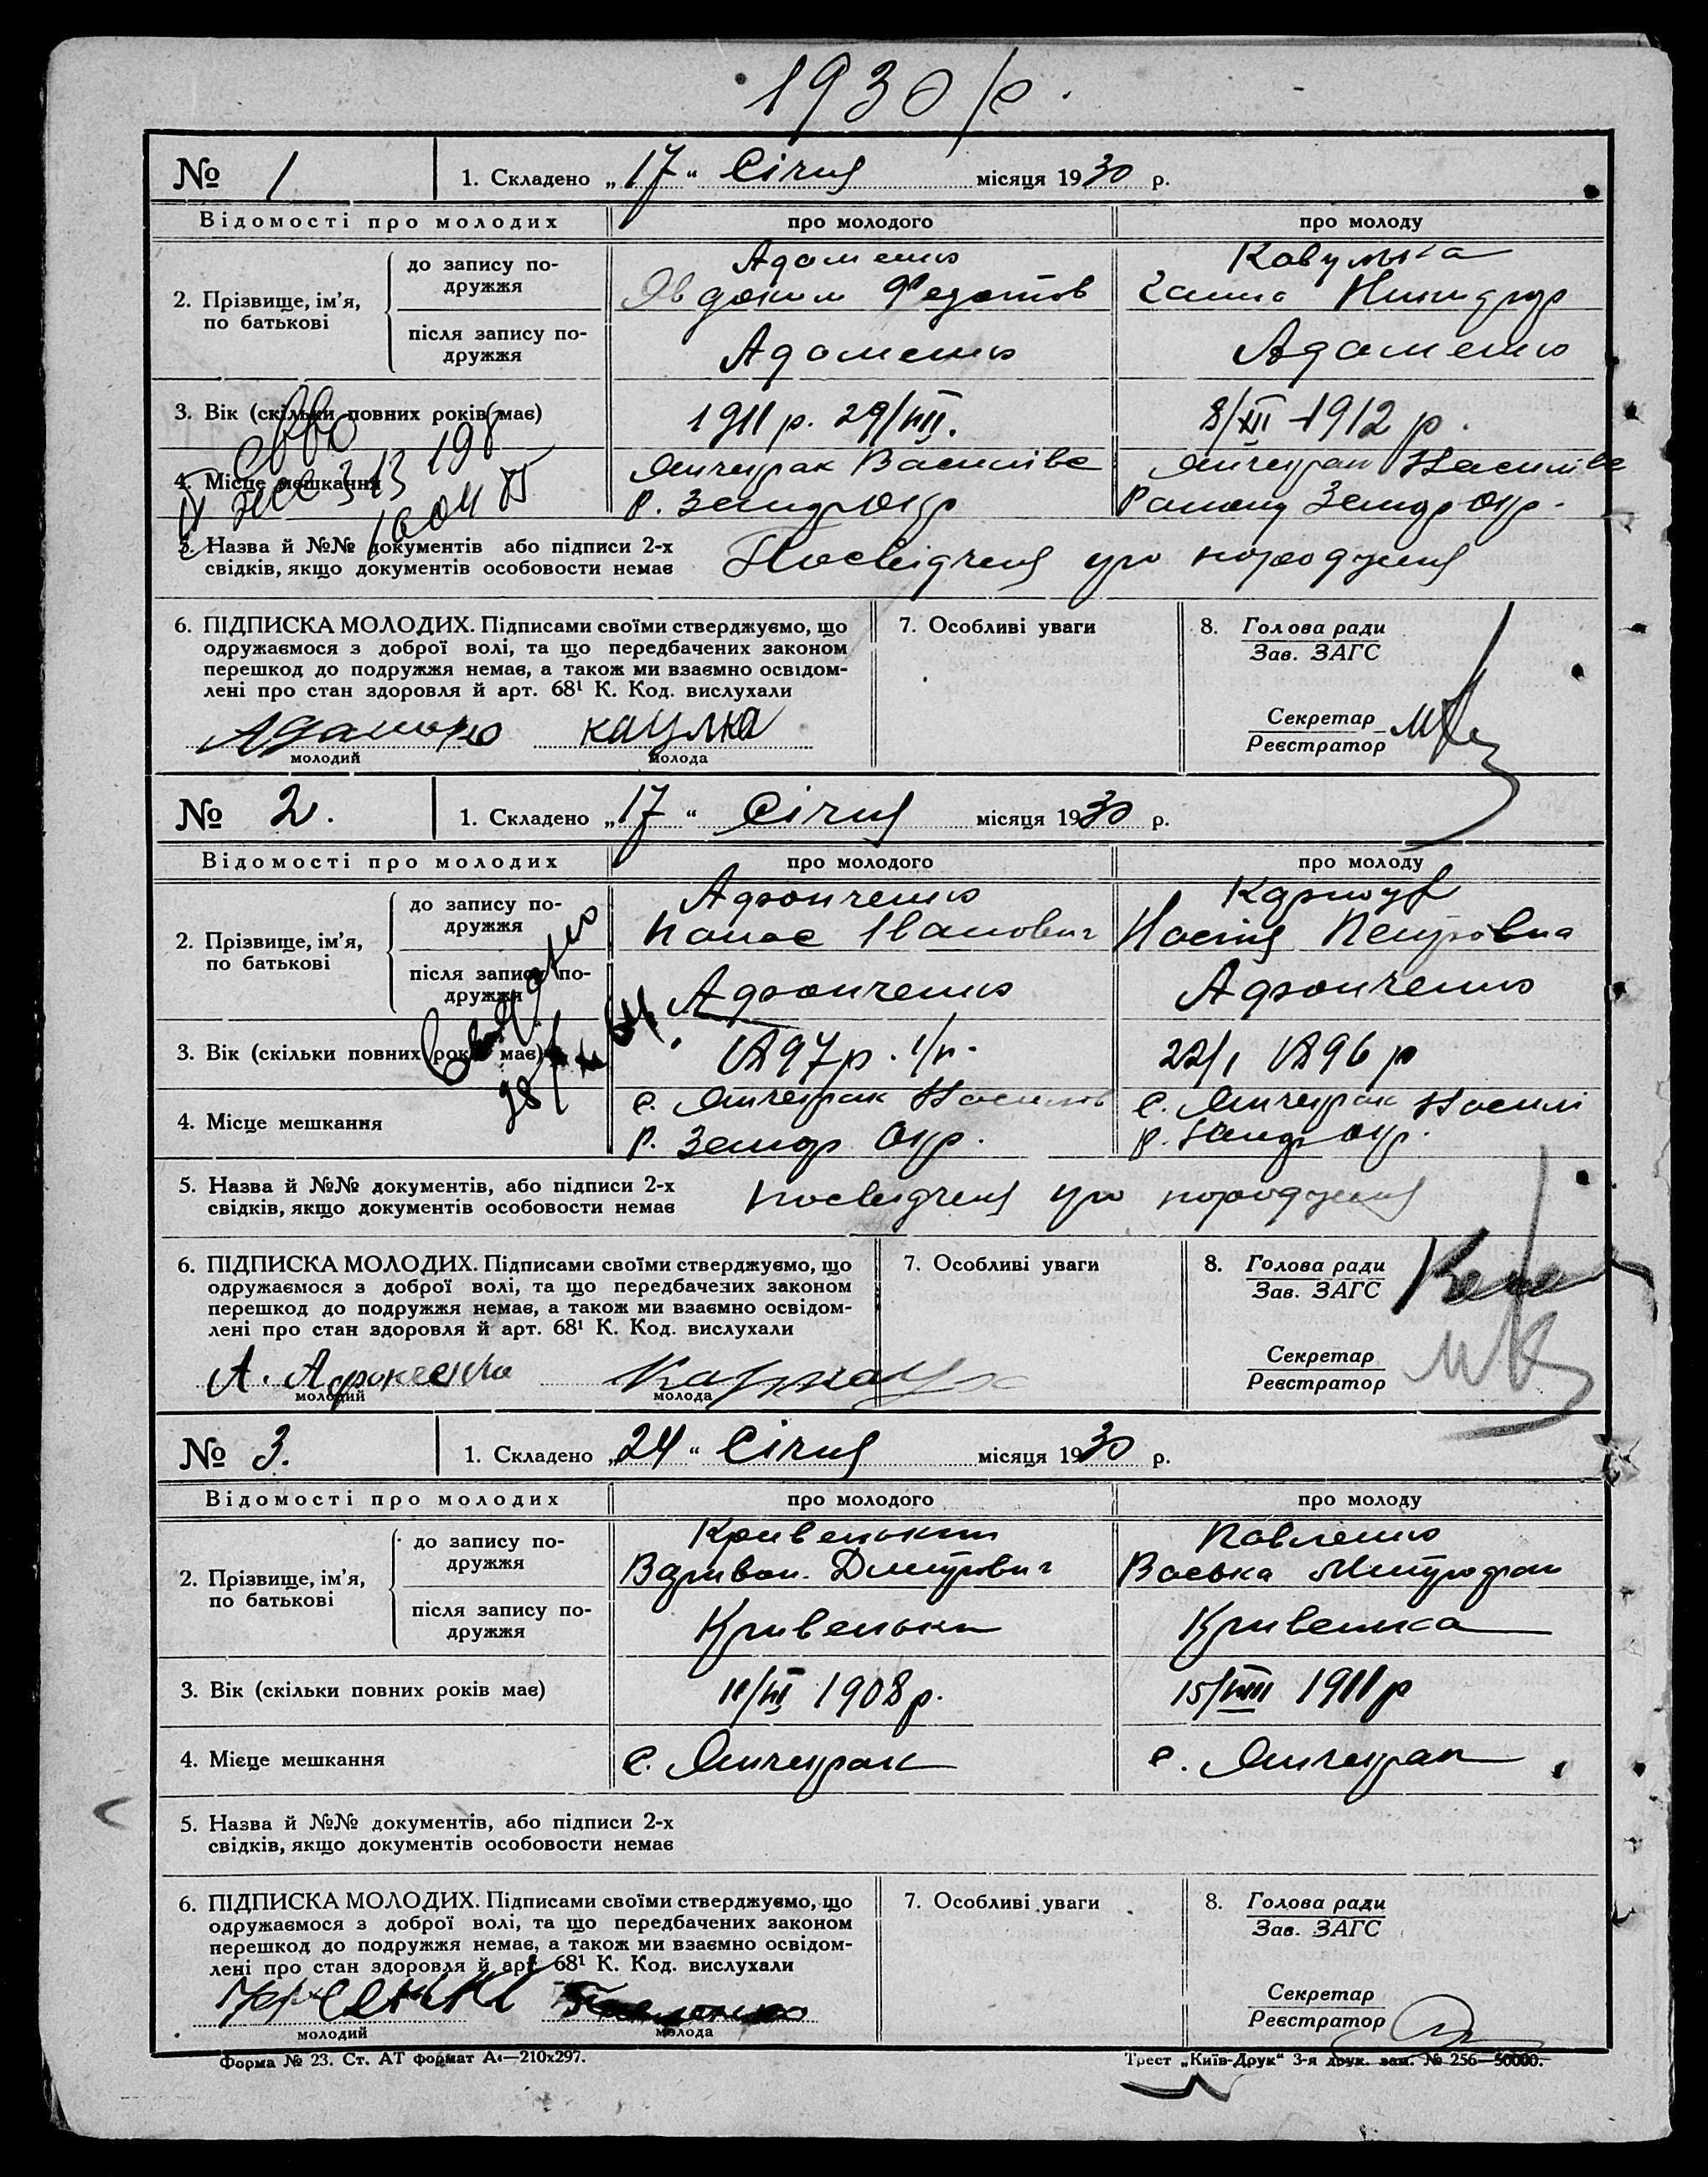 1930 р.
№ 1 1. Складено „17“ Січня місяця 1930 р.
Відомості про молодих про молодого про молоду
2. Прізвище, ім’я, по батькові
до запису подружжя
Адаменко
Явдоким Федотов
Ганна
після запису подружжя
Адаменко Адаменко
3. Вік (скільки повних років має) 1911 р. 29/VII. 8/XII 1912 р.
4. Місце мешкання
Янчекрак Василівс Янчекрак Василівс
Р. Запор Окр Району Запор Окр.
5. Назва й №№ документів або підписи 2-х
свідків, якщо документів особовости немає
Посвідченя про народженя
6. ПІДПИСКА МОЛОДИХ. Підписами своїми стверджуємо, що
одружаємося з доброї волі, та що передбачених законом
перешкод до подружжя немає, а також ми взаємно освідом-
лені про стан здоровля й арт. 68¹ К. Код. вислухали
каулка
молодий молода
7. Особливі уваги
8. Голова ради
Зав. ЗАГС
Секретар
Реєстратор
№ 2. 1. Складено „17“ Січня місяця 1930 р.
Відомості про молодих про молодого про молоду
2. Прізвище, ім’я, по батькові
до запису подружжя
Афонченко
Панас Іванович Настя Петровна
після запису подружжя
Афонченко Афонченко
3. Вік (скільки повних років має) 1897 р. 22/I 1896 р
4. Місце мешкання
с. Янчекрак с. Янчекрак
Р. Запор Окр. Р. Запор Окр.
5. Назва й №№ документів, або підписи 2-х
свідків, якщо документів особовости немає
Посвідченя про народженя
6. ПІДПИСКА МОЛОДИХ. Підписами своїми стверджуємо, що
одружаємося з доброї волі, та що передбачених законом
перешкод до подружжя немає, а також ми взаємно освідом-
лені про стан здоровля й арт. 68¹ К. Код. вислухали
молодий молода
7. Особливі уваги
8. Голова ради
Зав. ЗАГС
Секретар
Реєстратор
№ 3. 1. Складено „24“ Січня місяця 1930 р.
Відомості про молодих про молодого про молоду
2. Прізвище, ім’я, по батькові
до запису подружжя
Кривенький Павленко
Варивон Дмитрович Васька Митрофан
після запису подружжя
Кривеньки Кривенка
3. Вік (скільки повних років має) 1908 р. 15/VIII 1911 р
4. Місце мешкання с. Янчекрак с. Янчекрак
5. Назва й №№ документів, або підписи 2-х
свідків, якщо документів особовости немає
6. ПІДПИСКА МОЛОДИХ. Підписами своїми стверджуємо, що
одружаємося з доброї волі, та що передбачених законом
перешкод до подружжя немає, а також ми взаємно освідом-
лені про стан здоровля й арт. 68¹ К. Код. вислухали
молодий молода
7. Особливі уваги
8. Голова ради
Зав. ЗАГС
Секретар
Реєстратор
Форма № 23. Ст. АТ формат А₄—210x297. Трест „Київ-Друк“ 3-я друк. зам. № 256—50000.